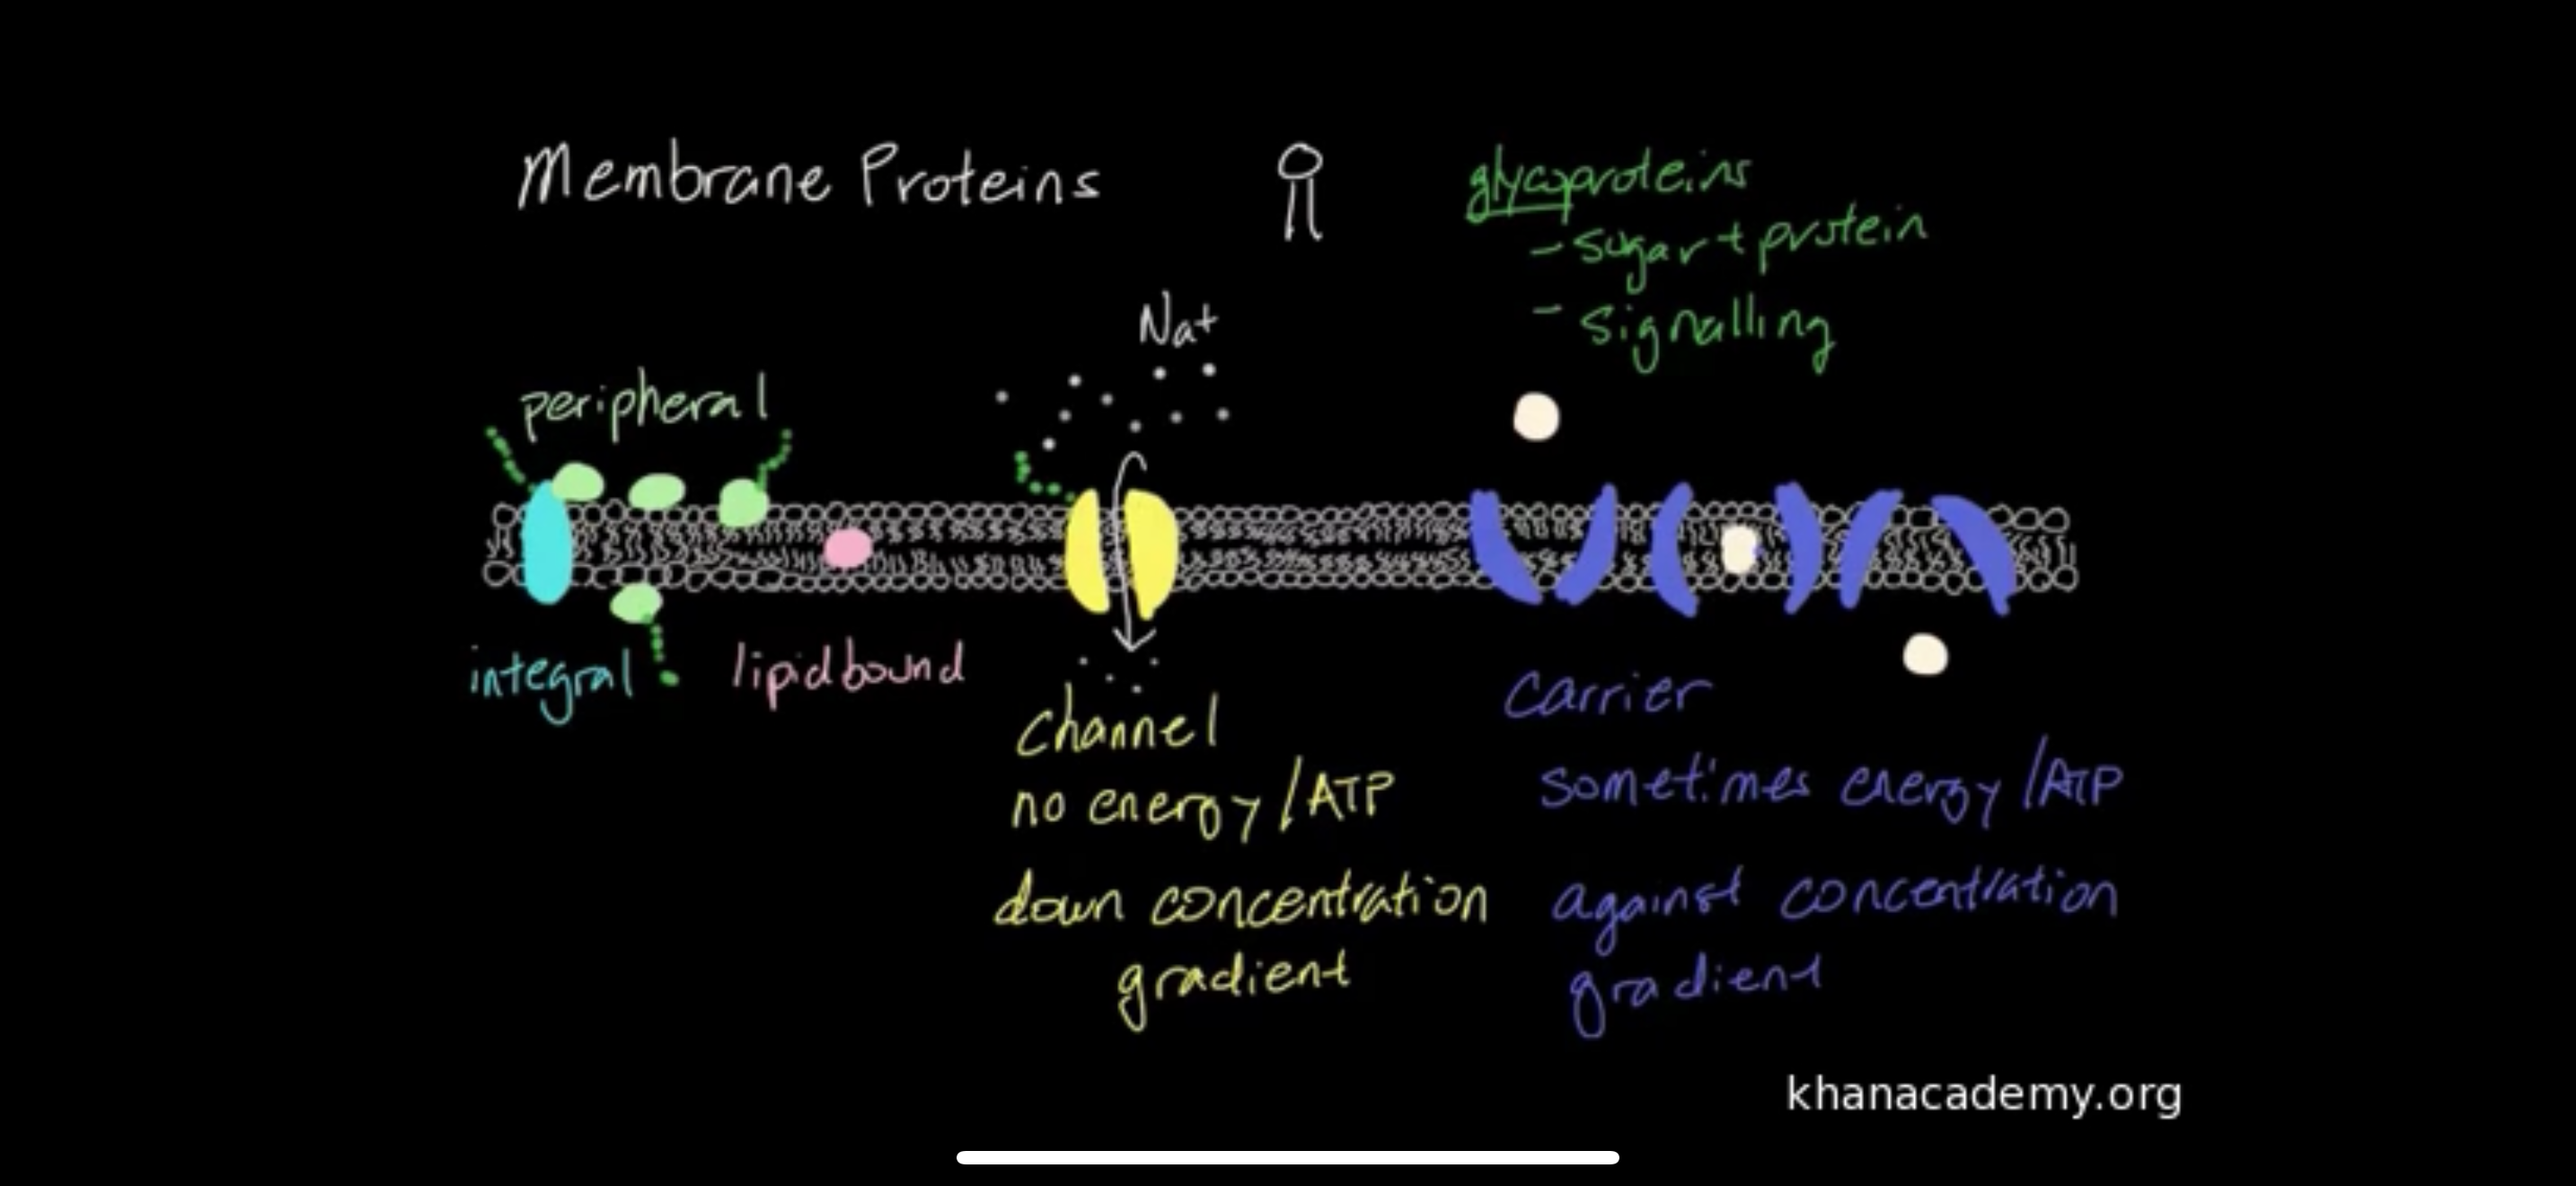 Membrane Proteins
glycoproteins
- sugar + protein
- signalling
Na+
peripheral
integral
lipid bound
Channel
no energy/ATP
down concentration
gradient
Carrier
sometimes energy/ATP
against concentration
gradient
khanacademy.org